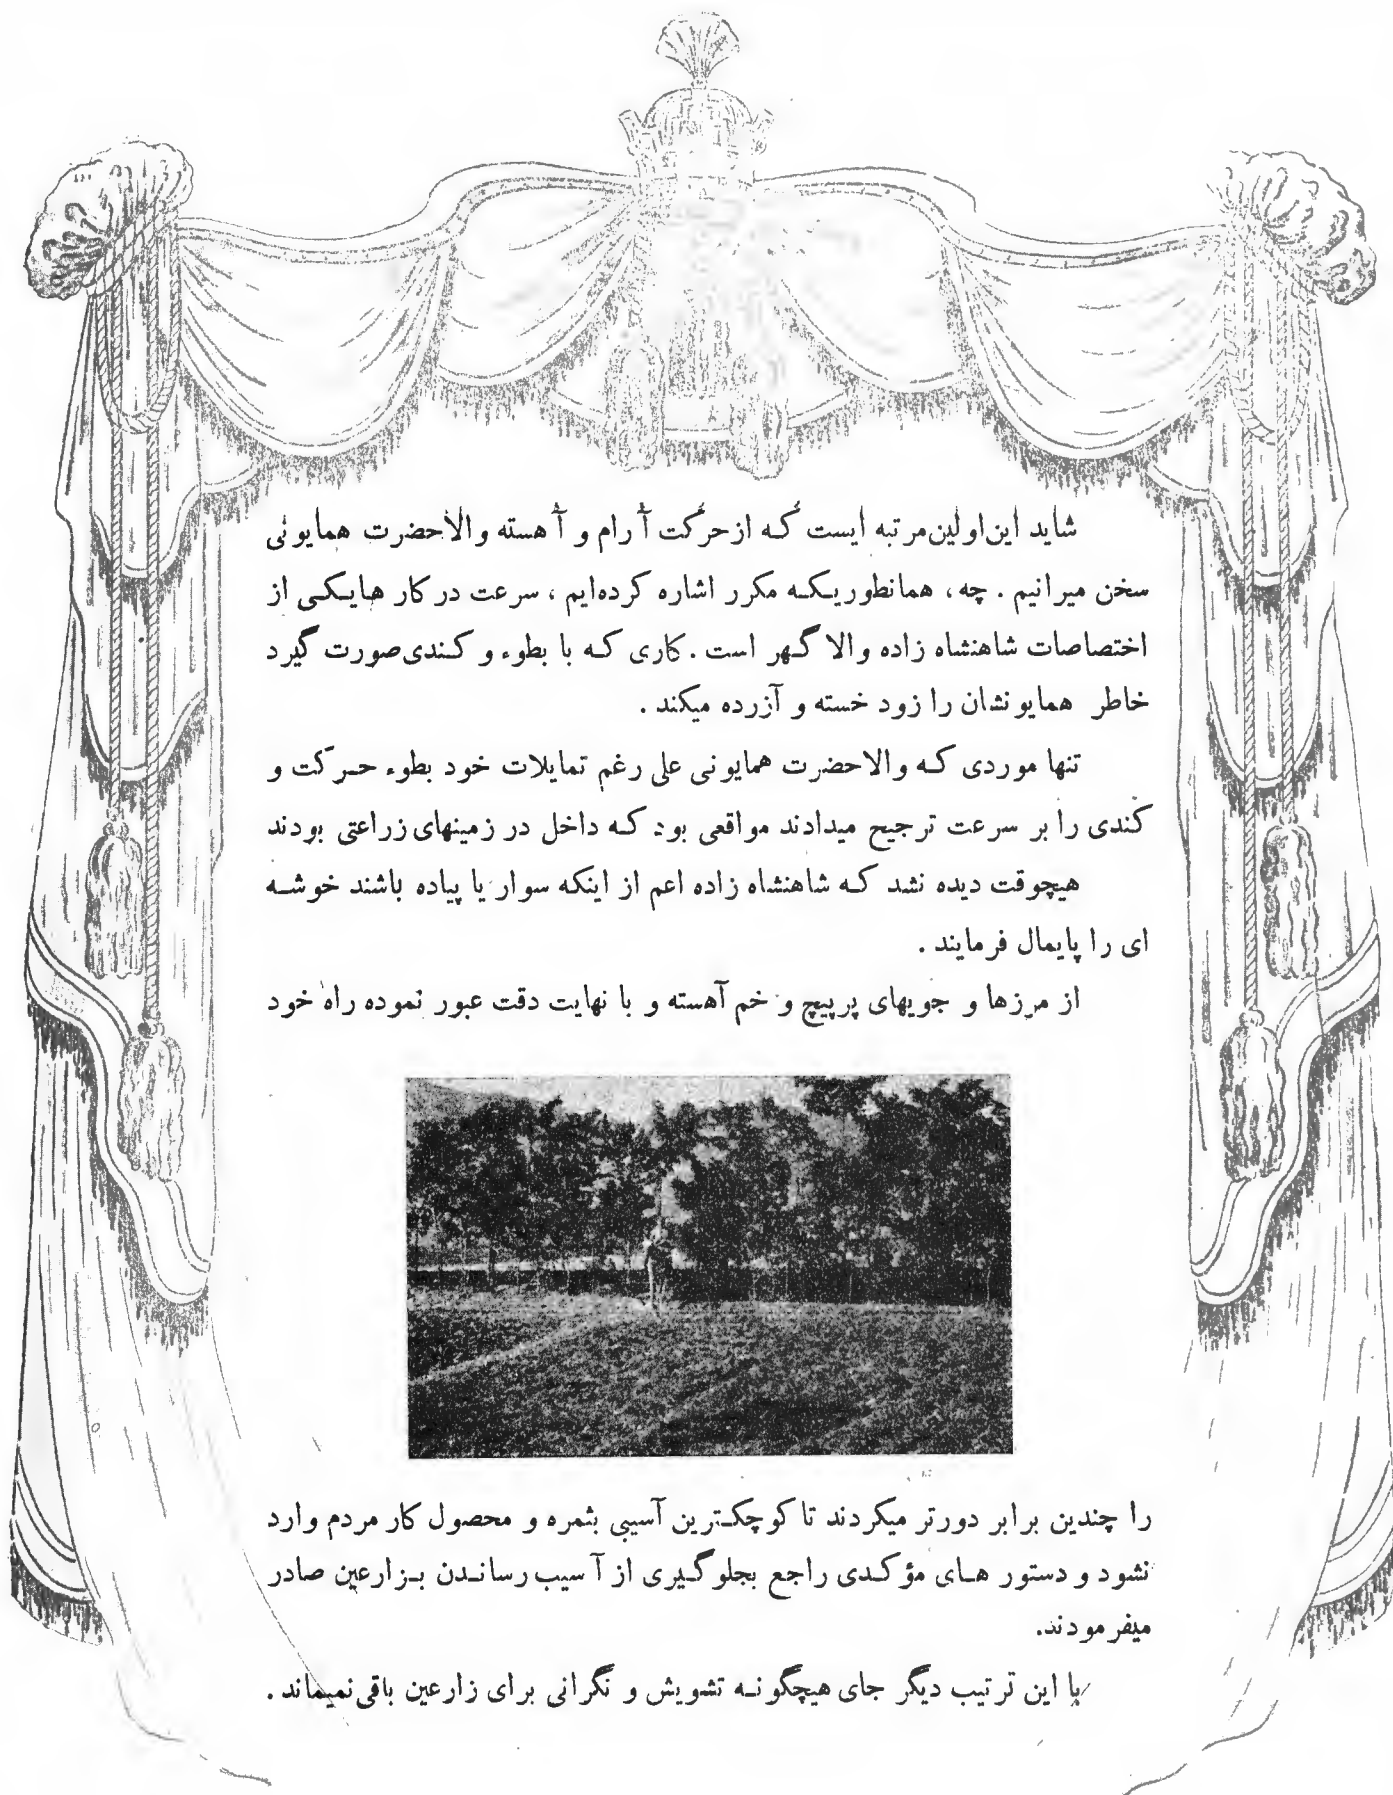 شاید این اولین مرتبه ایست که از حرکت آرام و آهسته والاحضرت همایونی
سخن میرانیم . چه، همانطوریکه مکرر اشاره کرده‌ایم ، سرعت در کار هایکی از
اختصاصات شاهنشاه زاده والا گهر است . کاری که با بطوء و کندی صورت گیرد
خاطر همایونشان را زود خسته و آزرده میکند .
تنها موردی که والاحضرت همایونی علی رغم تمایلات خود بطوء حرکت و
کندی را بر سرعت ترجیح میدادند مواقعی بود که داخل در زمینهای زراعتی بودند
هیچوقت دیده نشد که شاهنشاه زاده اعم از اینکه سوار یا پیاده باشند خوشه
ای را پایمال فرمایند .
از مرزها و جویهای پرپیچ و خم آهسته و با نهایت دقت عبور نموده راه خود
را چندین برابر دورتر میکردند تا کوچکترین آسیبی بثمره و محصول کار مردم وارد
نشود و دستور های مؤکدی راجع بجلوگیری از آسیب رساندن بزارعین صادر
میفرمودند.
با این ترتیب دیگر جای هیچگونه تشویش و نگرانی برای زارعین باقی نمیماند .